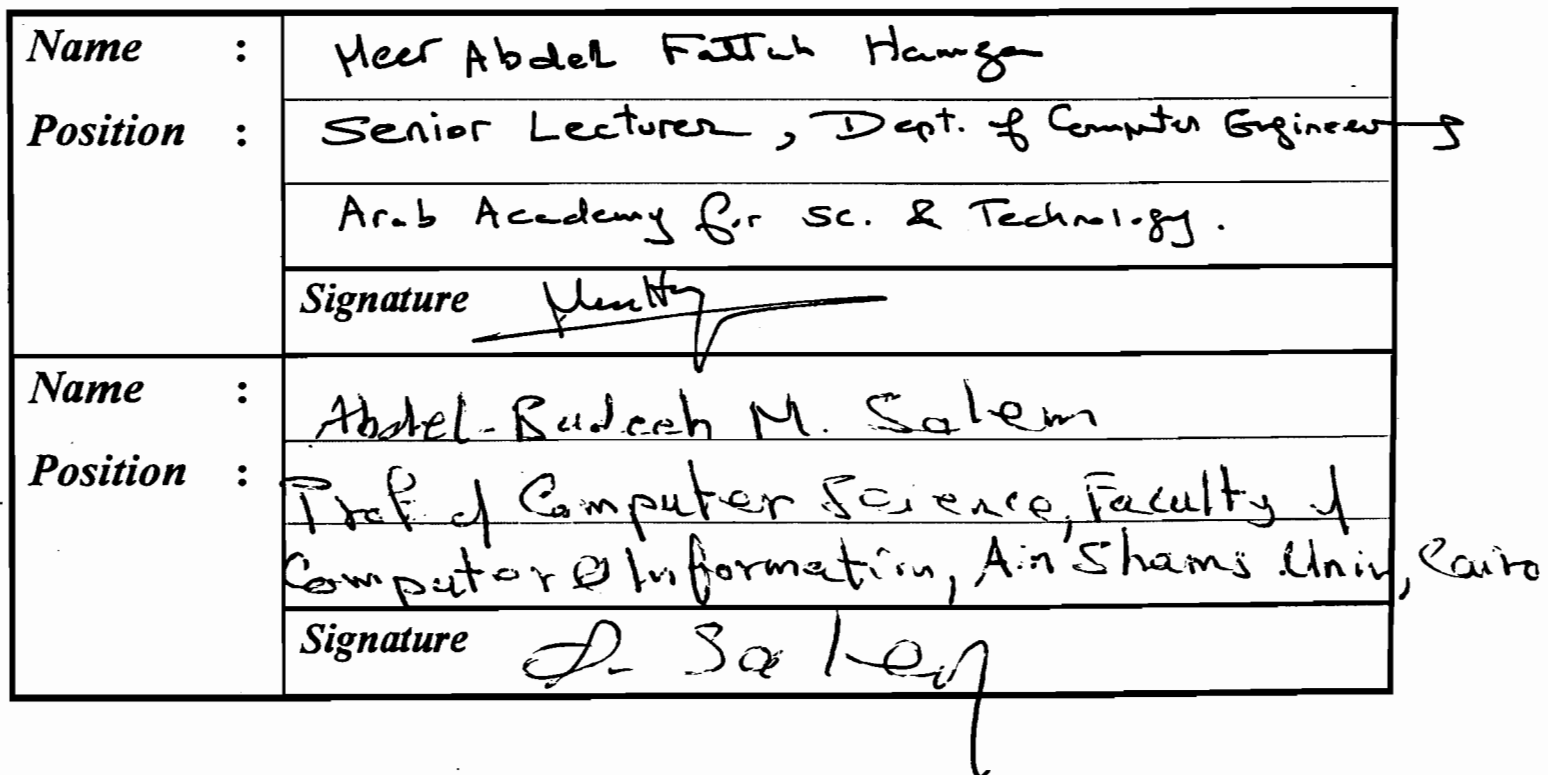 Name : Meer Abdel Fattah Hamza
Position : Senior Lecturer, Dept. of Computer Engineering
Arab Academy for Sc. & Technology.
Signature
Name : Abdel-Badeeh M. Salem
Position : Prof of Computer Science, Faculty of
Computer & Information, Ain Shams Univ, Cairo
Signature A. Salem